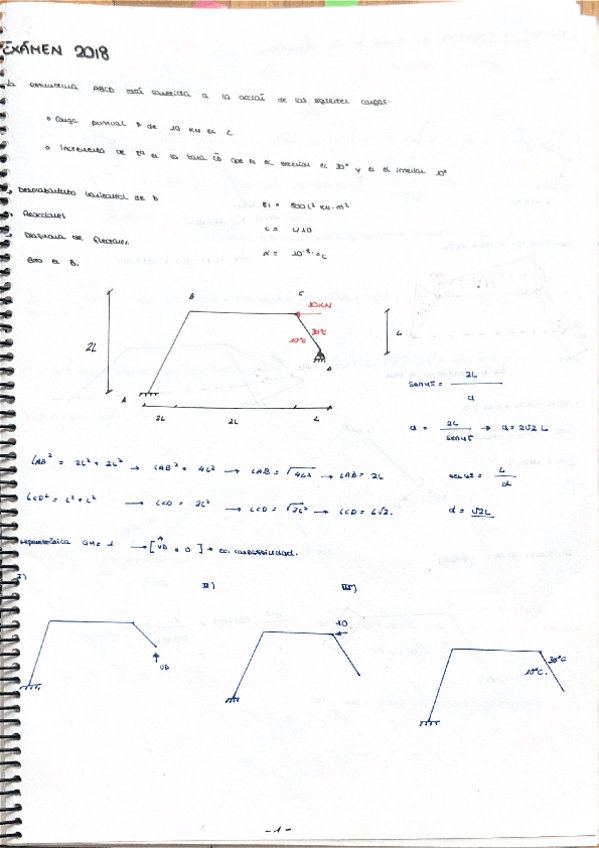 EXÁMEN 2018
La estructura ABCD está sometida a la acción de las siguientes cargas:
• Carga puntual P de 10 KN en C
• Incremento de tª en la barra CD que es el exterior es 30° y en el interior 10°
Desplazamiento horizontal de D
Reacciones
Diagrama de flectores
Giro en B.
L =
α = 10⁻⁵ °C
B
C
10KN
30°C
10°C
D
A
2L
2L
2L
L
L
sen45 = 2L / d
d = 2L / sen45 → d = 2√2 L
sen45 = L / d
d = √2L
LAB² = 2L² + 2L² → LAB² = 4L² → LAB = √4L² → LAB = 2L
LCD² = L² + L² → LCD = 2L² → LCD = √2L² → LCD = L√2.
Hiperestática GH = 1 → [VD = 0] → ec. compatibilidad.
I)
II)
III)
VD
10
30°C
10°C.
- 1 -